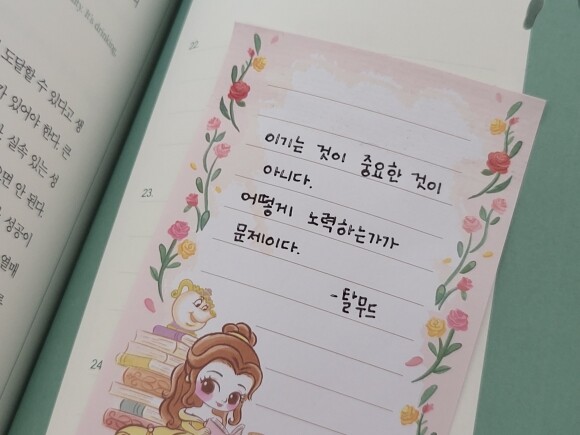 ity. It's drinking.
도달할 수 있다고 생
가 있어야 한다. 큰
실속 있는 성
으면 안 된다.
성공이
열매
로
22
23
24
이기는 것이 중요한 것이
아니다.
어떻게 노력하는가가
문제이다.
-탈무드